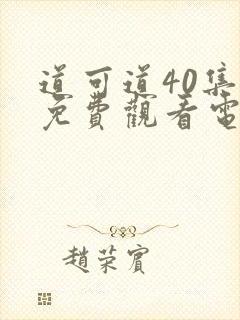 道可道40集
免費觀看電
趙荣賓